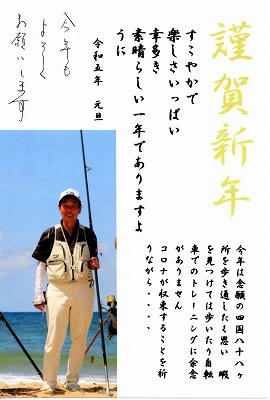 謹賀新年
すこやかで
楽しさいっぱい
幸多き
素晴らしい一年でありますよ
うに
令和五年 元旦
今年も
よろしく
お願いします
今年は念願の四国八十八ヶ
所を歩き通したく思い 暇
を見つけては歩いたり自転
車でのトレーニングに余念
がありません
コロナが収束することを祈
りながら・・・・